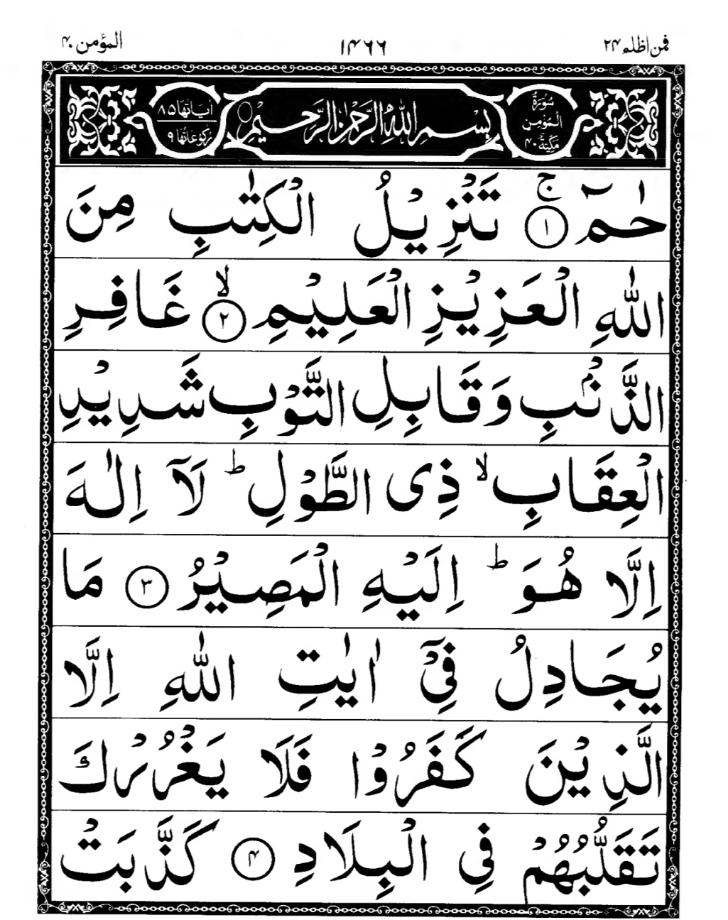 فمن اظلم ۲۴
۱۴۶۶
المؤمن ۴۰
سُوْرَةُ الْمُؤْمِنِ مَكِّيَّةٌ ۴۰
بِسْمِ اللّٰهِ الرَّحْمٰنِ الرَّحِيْمِ
اٰیَاتُهَا ۸۵
رُكُوْعَاتُهَا ۹
حٰمٓ ۚ ۝۱ تَنْزِيْلُ الْكِتٰبِ مِنَ
اللّٰهِ الْعَزِيْزِ الْعَلِيْمِ ۙ ۝۲ غَافِرِ
الذَّنْۢبِ وَقَابِلِ التَّوْبِ شَدِيْدِ
الْعِقَابِ ۙ ذِی الطَّوْلِ ؕ لَآ اِلٰهَ
اِلَّا هُوَ ؕ اِلَيْهِ الْمَصِيْرُ ۝۳ مَا
يُجَادِلُ فِیْۤ اٰيٰتِ اللّٰهِ اِلَّا
الَّذِيْنَ كَفَرُوْا فَلَا يَغْرُرْكَ
تَقَلُّبُهُمْ فِی الْبِلَادِ ۝۴ كَذَّبَتْ